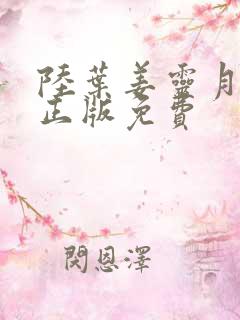 陸葉姜靈月
正版免費
閔恩澤